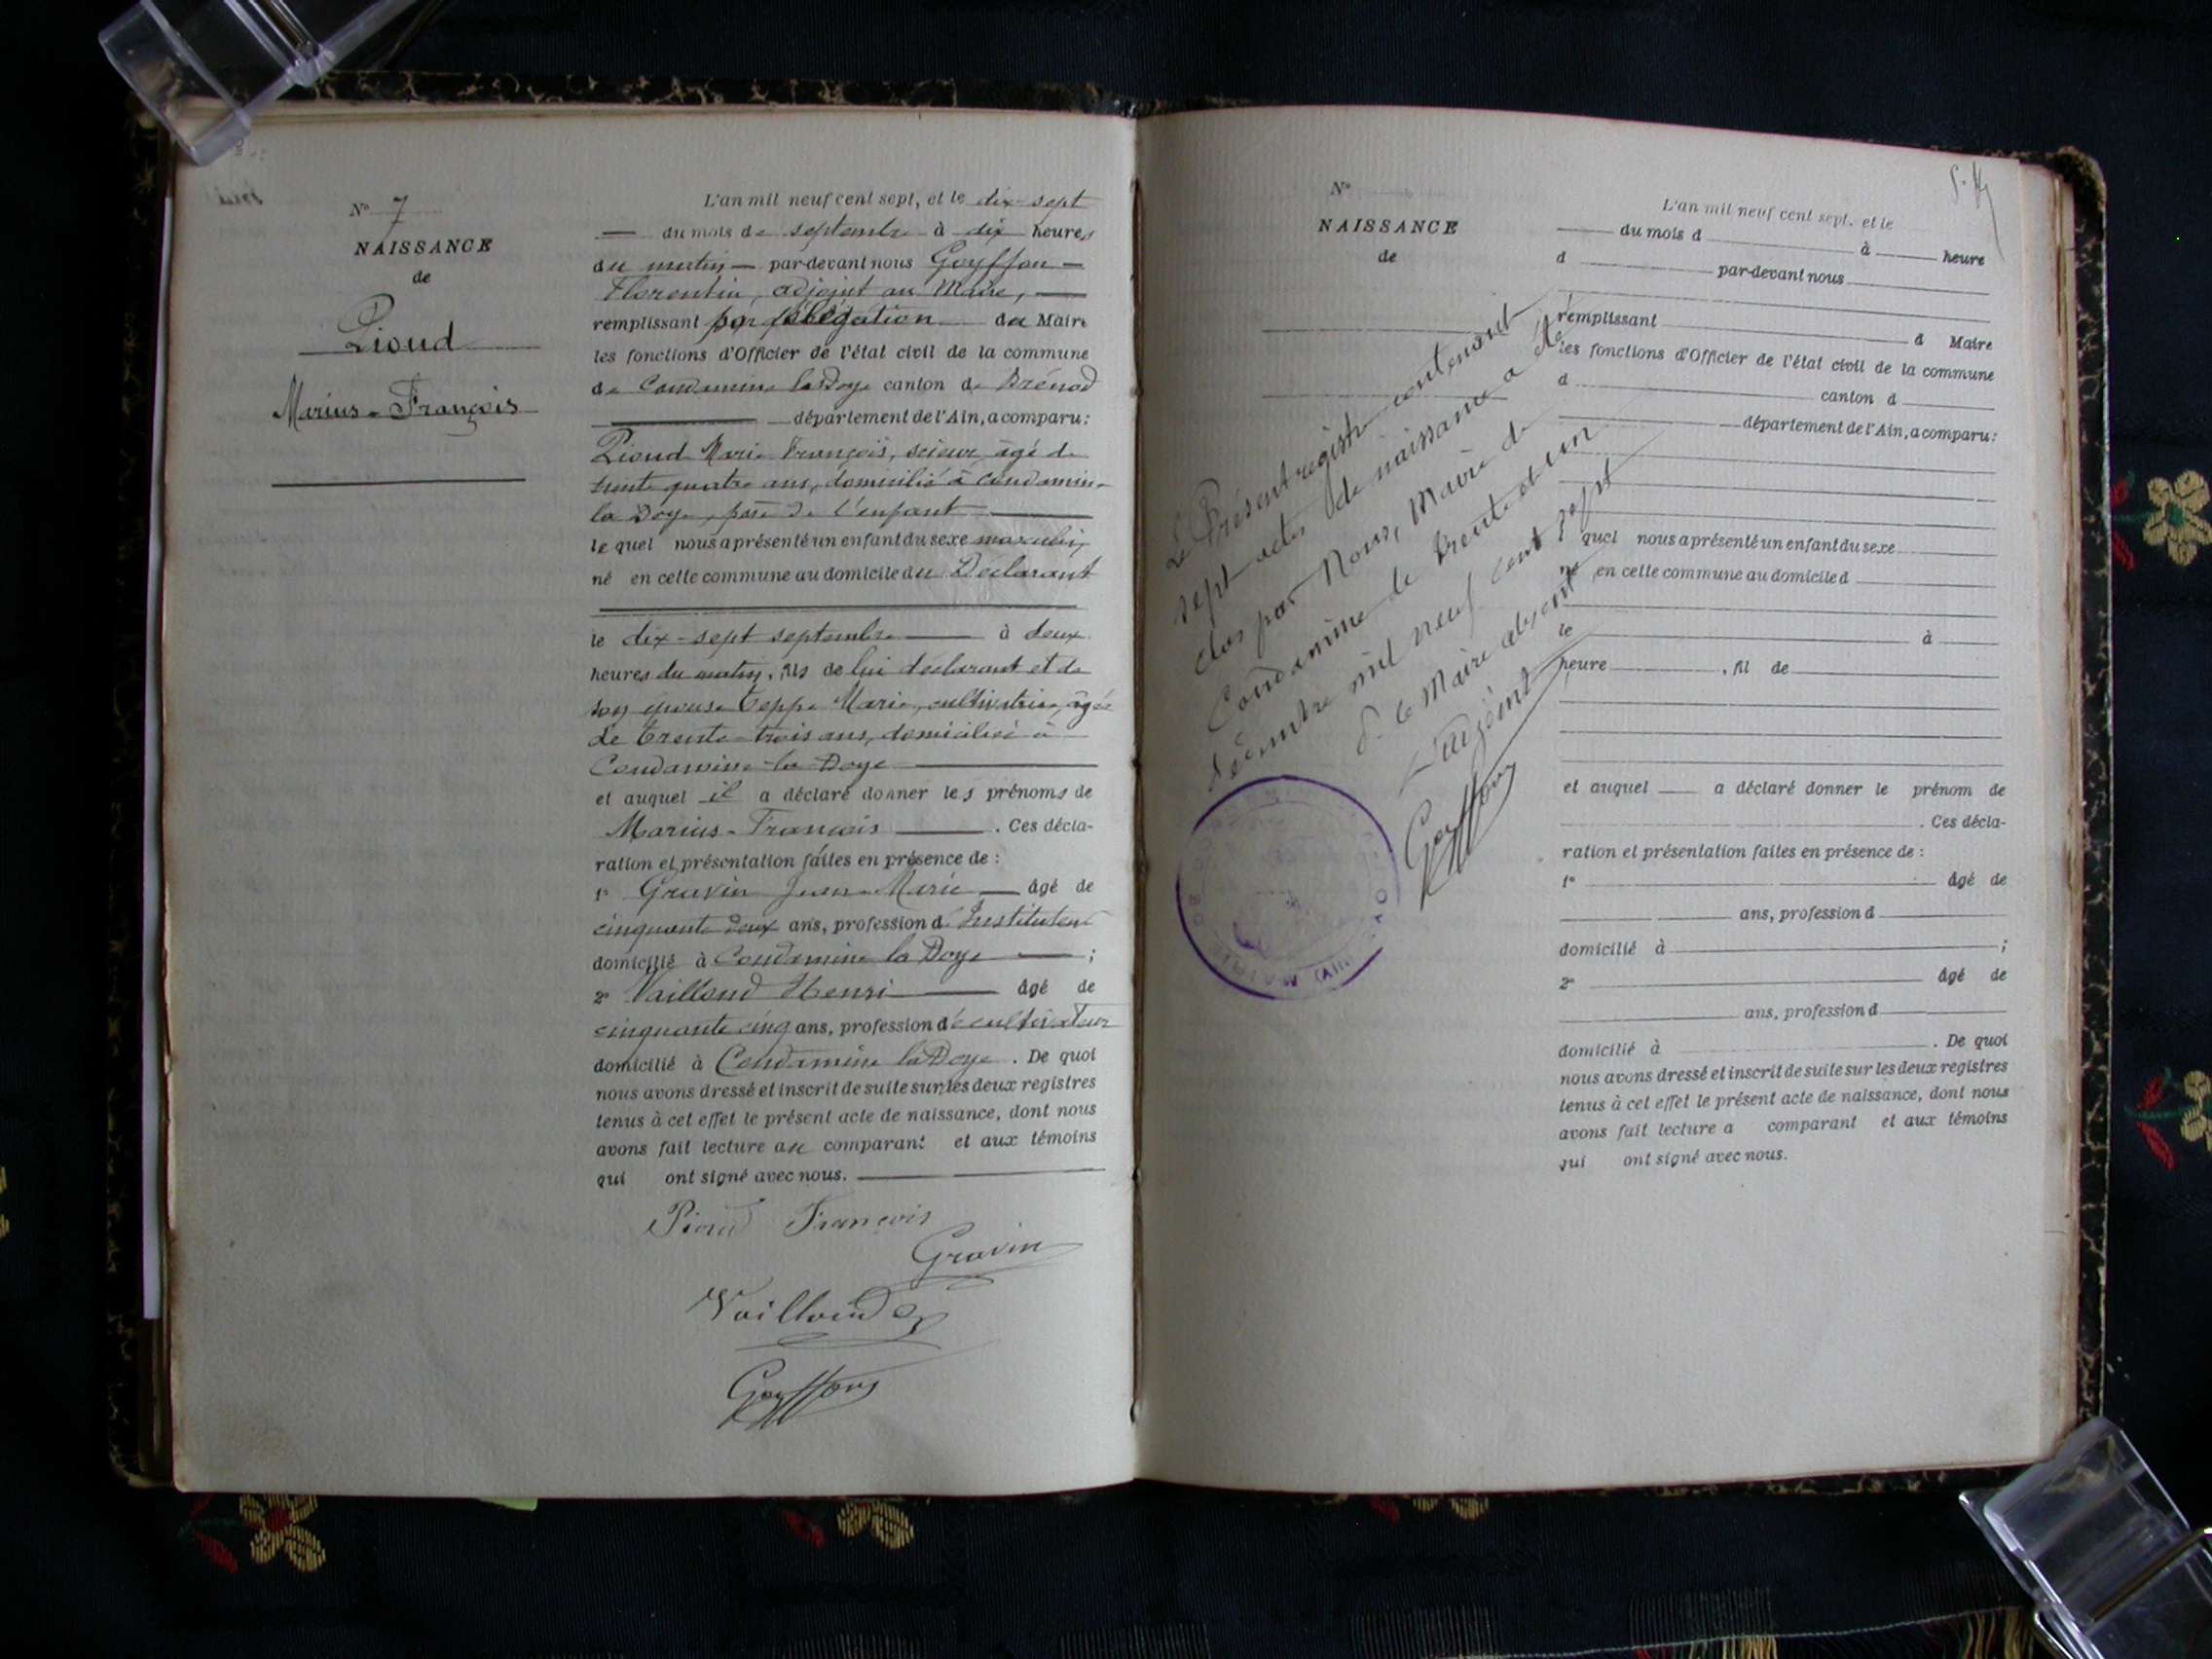 N° 7
NAISSANCE
de
Pioud
Marius-François
L'an mil neuf cent sept, et le dix-sept
du mois de septembre à dix heures
du matin par-devant nous Goyffon
Florentin, adjoint au Maire,
remplissant par délégation du Maire
les fonctions d'Officier de l'état civil de la commune
de Condamine la Doye canton de Brénod
département de l'Ain, a comparu:
Pioud Marie François, scieur, âgé de
trente quatre ans, domicilié à Condamine
la Doye, père de l'enfant
lequel nous a présenté un enfant du sexe masculin
né en cette commune au domicile du Déclarant
le dix-sept septembre à deux
heures du matin, fils de lui déclarant et de
son épouse Teppe Marie, cultivatrice, âgée
de trente-trois ans, domiciliée à
Condamine-la-Doye
et auquel il a déclaré donner les prénoms de
Marius-François. Ces décla-
ration et présentation faites en présence de :
1° Gravin Jean-Marie âgé de
cinquante deux ans, profession d'Instituteur
domicilié à Condamine la Doye ;
2° Vailloud Henri âgé de
cinquante cinq ans, profession de cultivateur
domicilié à Condamine la Doye. De quoi
nous avons dressé et inscrit de suite sur les deux registres
tenus à cet effet le présent acte de naissance, dont nous
avons fait lecture au comparant et aux témoins
qui ont signé avec nous.
Pioud François
Gravin
Vailloud
Goyffon
N°
NAISSANCE
de
Le Présent registre contenant
sept actes de naissance a été
clos par Nous, Maire de
Condamine le trente et un
décembre mil neuf cent sept
P. le Maire absent
L'adjoint
Goyffon
L'an mil neuf cent sept, et le
du mois d à heure
d par-devant nous
remplissant d Maire
les fonctions d'Officier de l'état civil de la commune
d canton d
département de l'Ain, a comparu:
quel nous a présenté un enfant du sexe
né en cette commune au domicile d
le à
heure , fil de
et auquel a déclaré donner le prénom de
. Ces décla-
ration et présentation faites en présence de :
1° âgé de
ans, profession d
domicilié à ;
2° âgé de
ans, profession d
domicilié à . De quoi
nous avons dressé et inscrit de suite sur les deux registres
tenus à cet effet le présent acte de naissance, dont nous
avons fait lecture a comparant et aux témoins
qui ont signé avec nous.